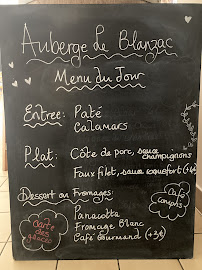 Auberge Le Blanzac
Menu du Jour
Entrée: Pâté
Calamars
Plat: Côte de porc, sauce
champignons
Faux filet, sauce roquefort (+3€)
Dessert ou Fromages:
Panacotta
Fromage Blanc
Café Gourmand (+3€)
Café
compris
Carte
des
glaces